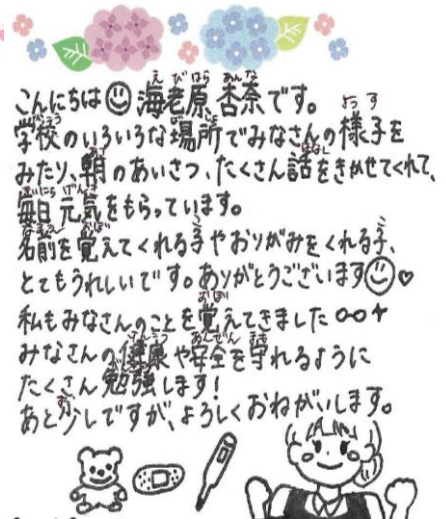 こんにちは 海老原 杏奈です。
学校のいろいろな場所でみなさんの様子を
みたり、朝のあいさつ、たくさん話をきかせてくれて、
毎日元気をもらっています。
名前を覚えてくれる子やおりがみをくれる子、
とてもうれしいです。ありがとうございます♡
私もみなさんのことを覚えてきました
みなさんの健康や安全を守れるように
たくさん勉強します!
あと少しですが、よろしくおねがいします。